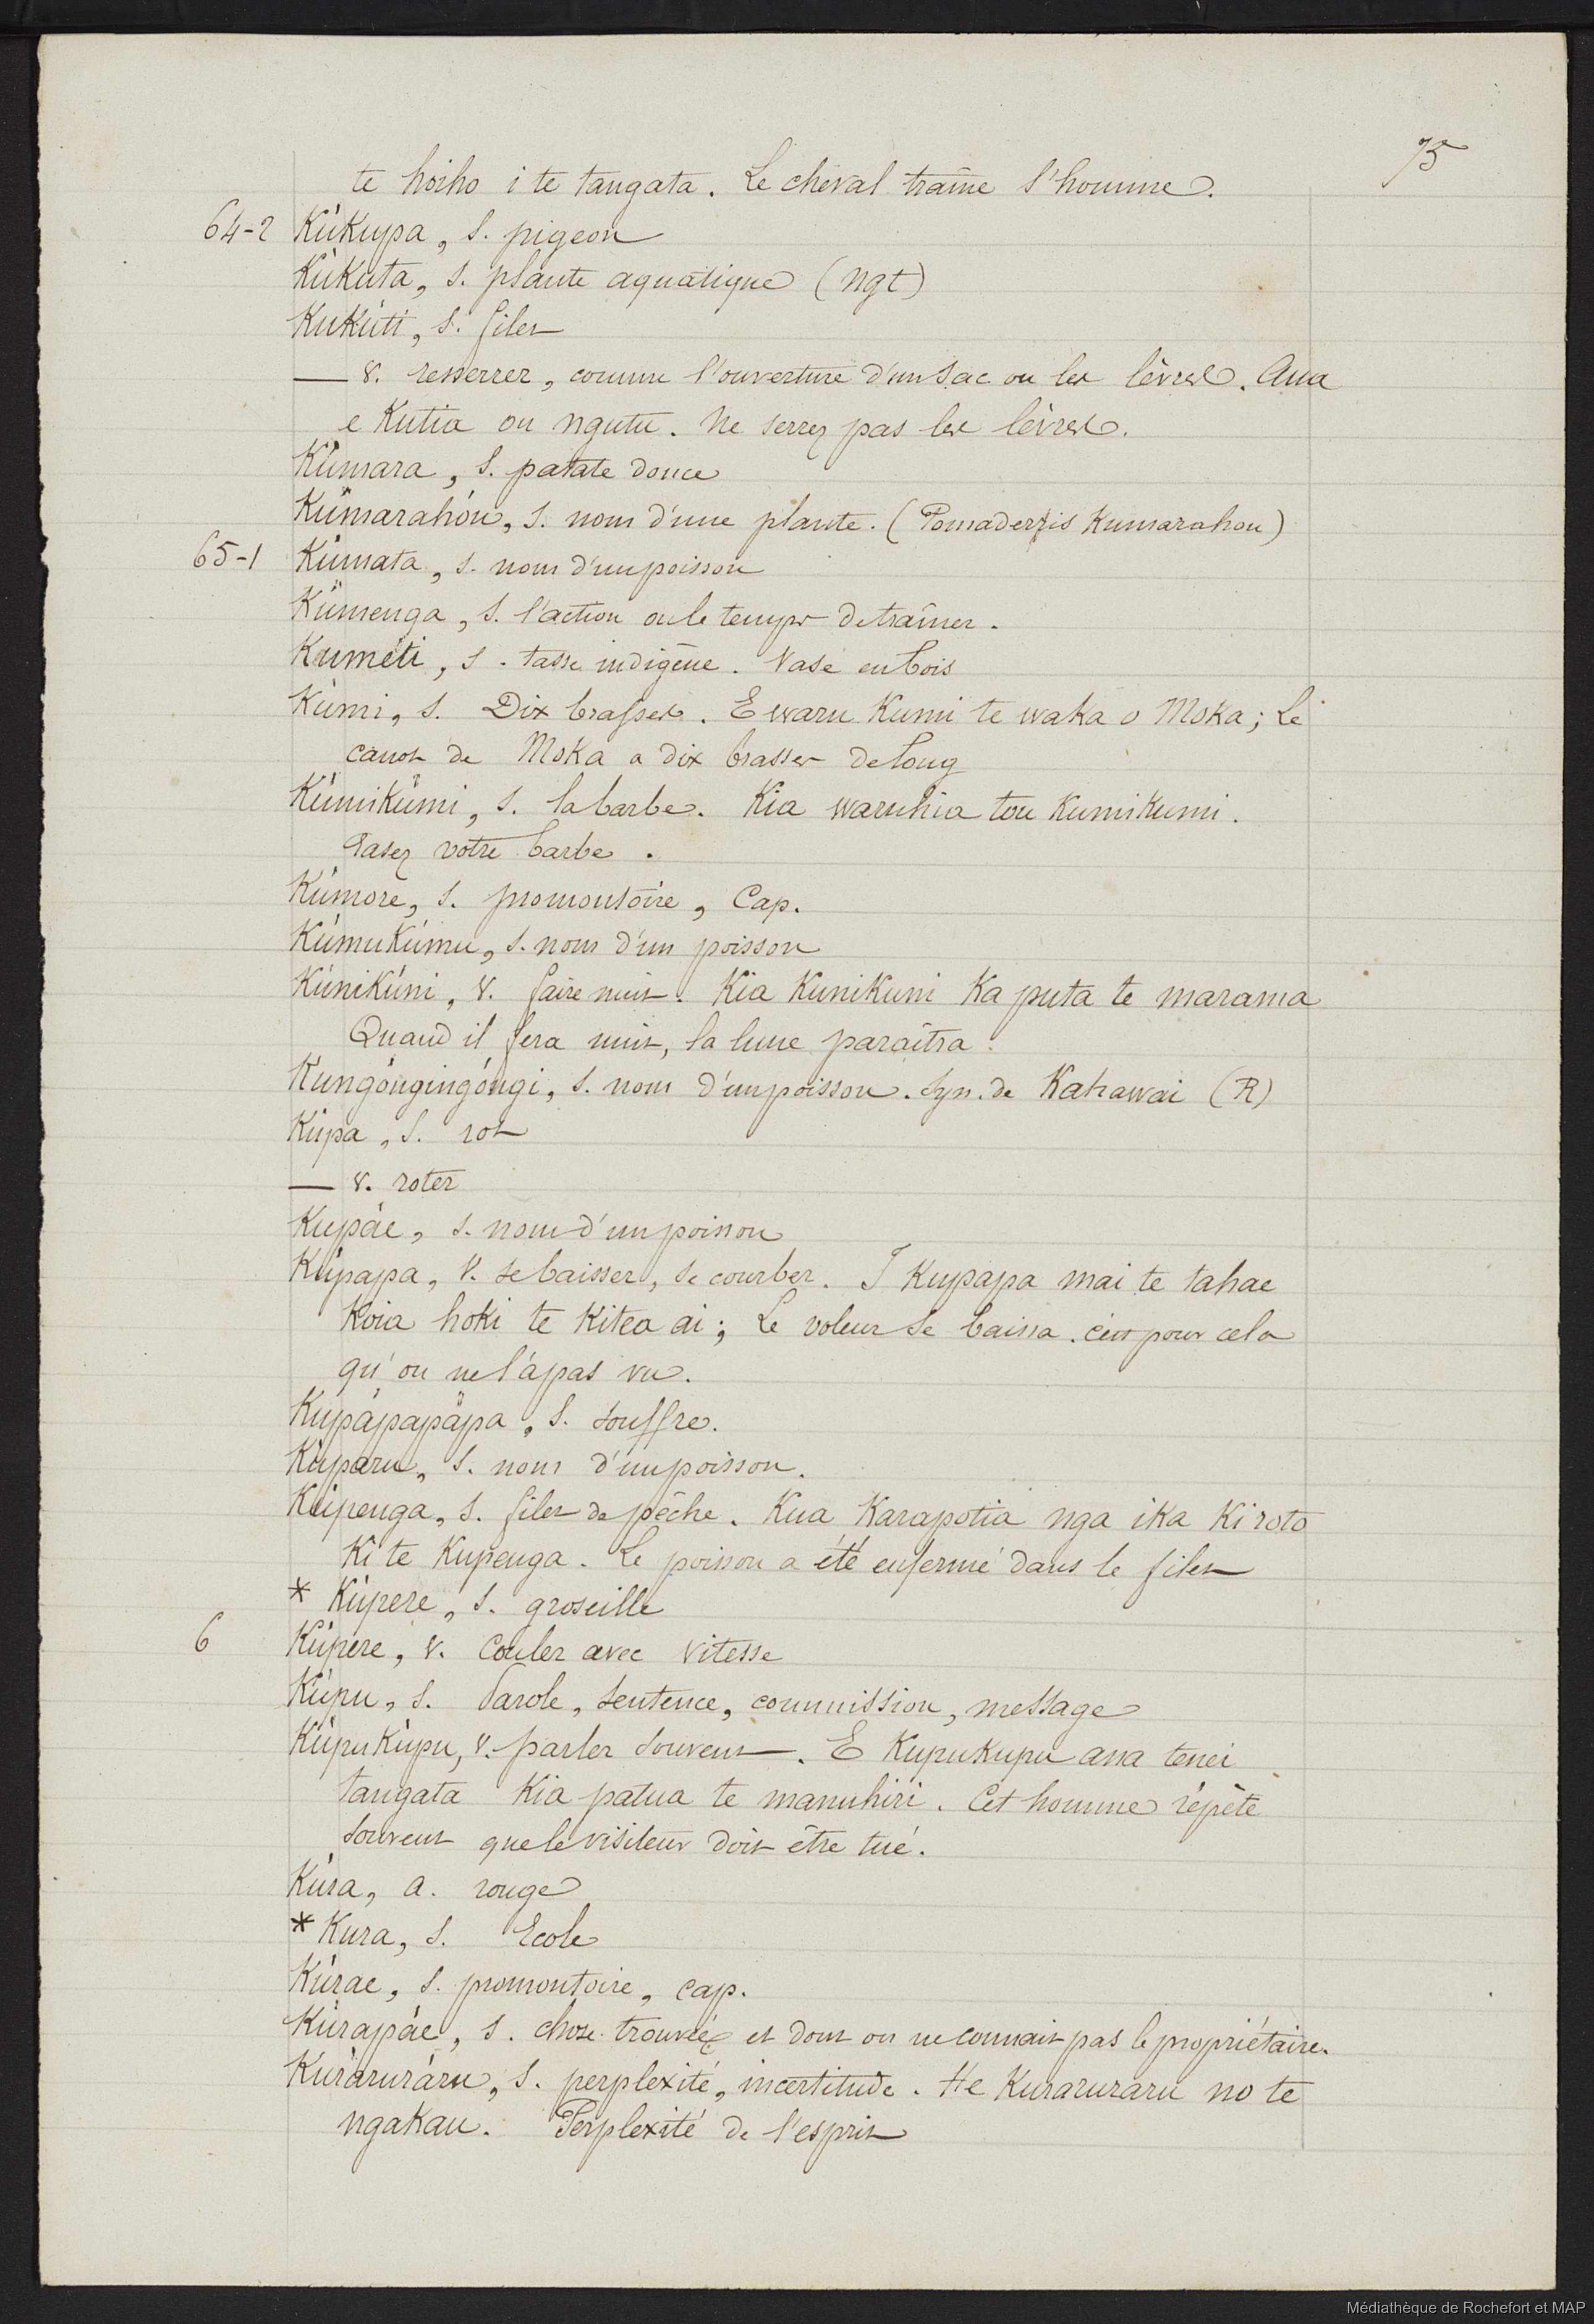 75
te hoiho i te tangata. Le cheval traîne l'homme.
64-2 Kùkupa, s. pigeon
Kùkuta, s. plante aquatique (ngt)
Kukùti, s. filet
— v. resserrer, comme l'ouverture d'un sac ou les lèvres. Aua
e Kutia ou ngutu. Ne serrez pas les lèvres.
Kùmara, s. patate douce
Kùmarahóu, s. nom d'une plante. (Pomaderris Kumarahou)
65-1 Kùmata, s. nom d'un poisson
Kùmenga, s. l'action ou le temps de traîner.
Kuméti, s. tasse indigène. Vase en bois
Kùmi, s. Dix brasses. E waru Kumi te waka o Moka; Le
canot de Moka a dix brasses de long
Kùmikùmi, s. la barbe. Kia waruhia tou Kumikumi.
Rasez votre barbe.
Kúmore, s. promontoire, Cap.
Kúmukúmu, s. nom d'un poisson
Kùnikúni, v. faire nuit. Kia Kunikuni Ka puta te marama
Quand il fera nuit, la lune paraîtra.
Kungóngingóngi, s. nom d'un poisson. Syn. de Kahawai (R)
Kùpa, s. rot
— v. roter
Kupáe, s. nom d'un poisson
Kùpapa, v. se baisser, se courber. I Kupapa mai te tahae
Koia hoki te Kitea ai; Le voleur se baissa. c'est pour cela
qu'on ne l'a pas vu.
Kupápapápa, s. souffre.
Kùparu, s. nom d'un poisson.
Kùpenga, s. filet de pêche. Kua Karapotia nga ika Ki roto
Ki te Kupenga. Le poisson a été enfermé dans le filet
* Kùpere, s. groseille
6 Kùpere, v. Couler avec vitesse
Kùpu, s. Parole, sentence, commission, message
Kùpukùpu, v. parler souvent. E Kupukupu ana tenei
tangata Kia patua te manuhiri. Cet homme répète
souvent que le visiteur doit être tué.
Kùra, a. rouge
* Kura, s. Ecole
Kùrae, s. promontoire, cap.
Kùrapáe, s. chose trouvée et dont on ne connait pas le propriétaire.
Kuráruráru, s. perplexité, incertitude. He Kuraruraru no te
ngakau. Perplexité de l'esprit
Médiathèque de Rochefort et MAP